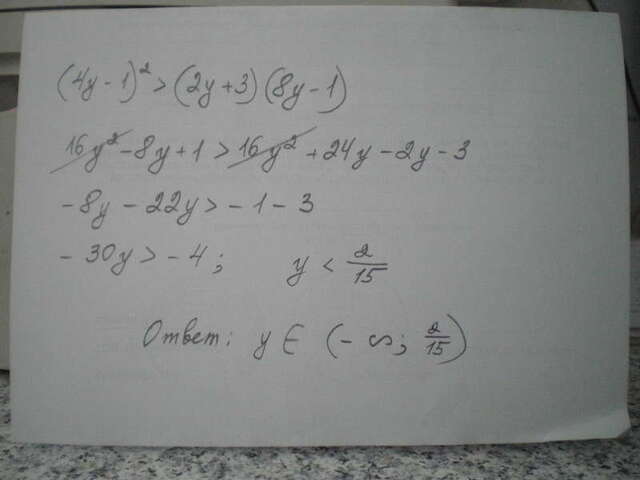 (4y - 1)² > (2y + 3)(8y - 1)
16y² - 8y + 1 > 16y² + 24y - 2y - 3
- 8y - 22y > - 1 - 3
- 30y > - 4; y < 2/15
Ответ: y ∈ (- ∞; 2/15)